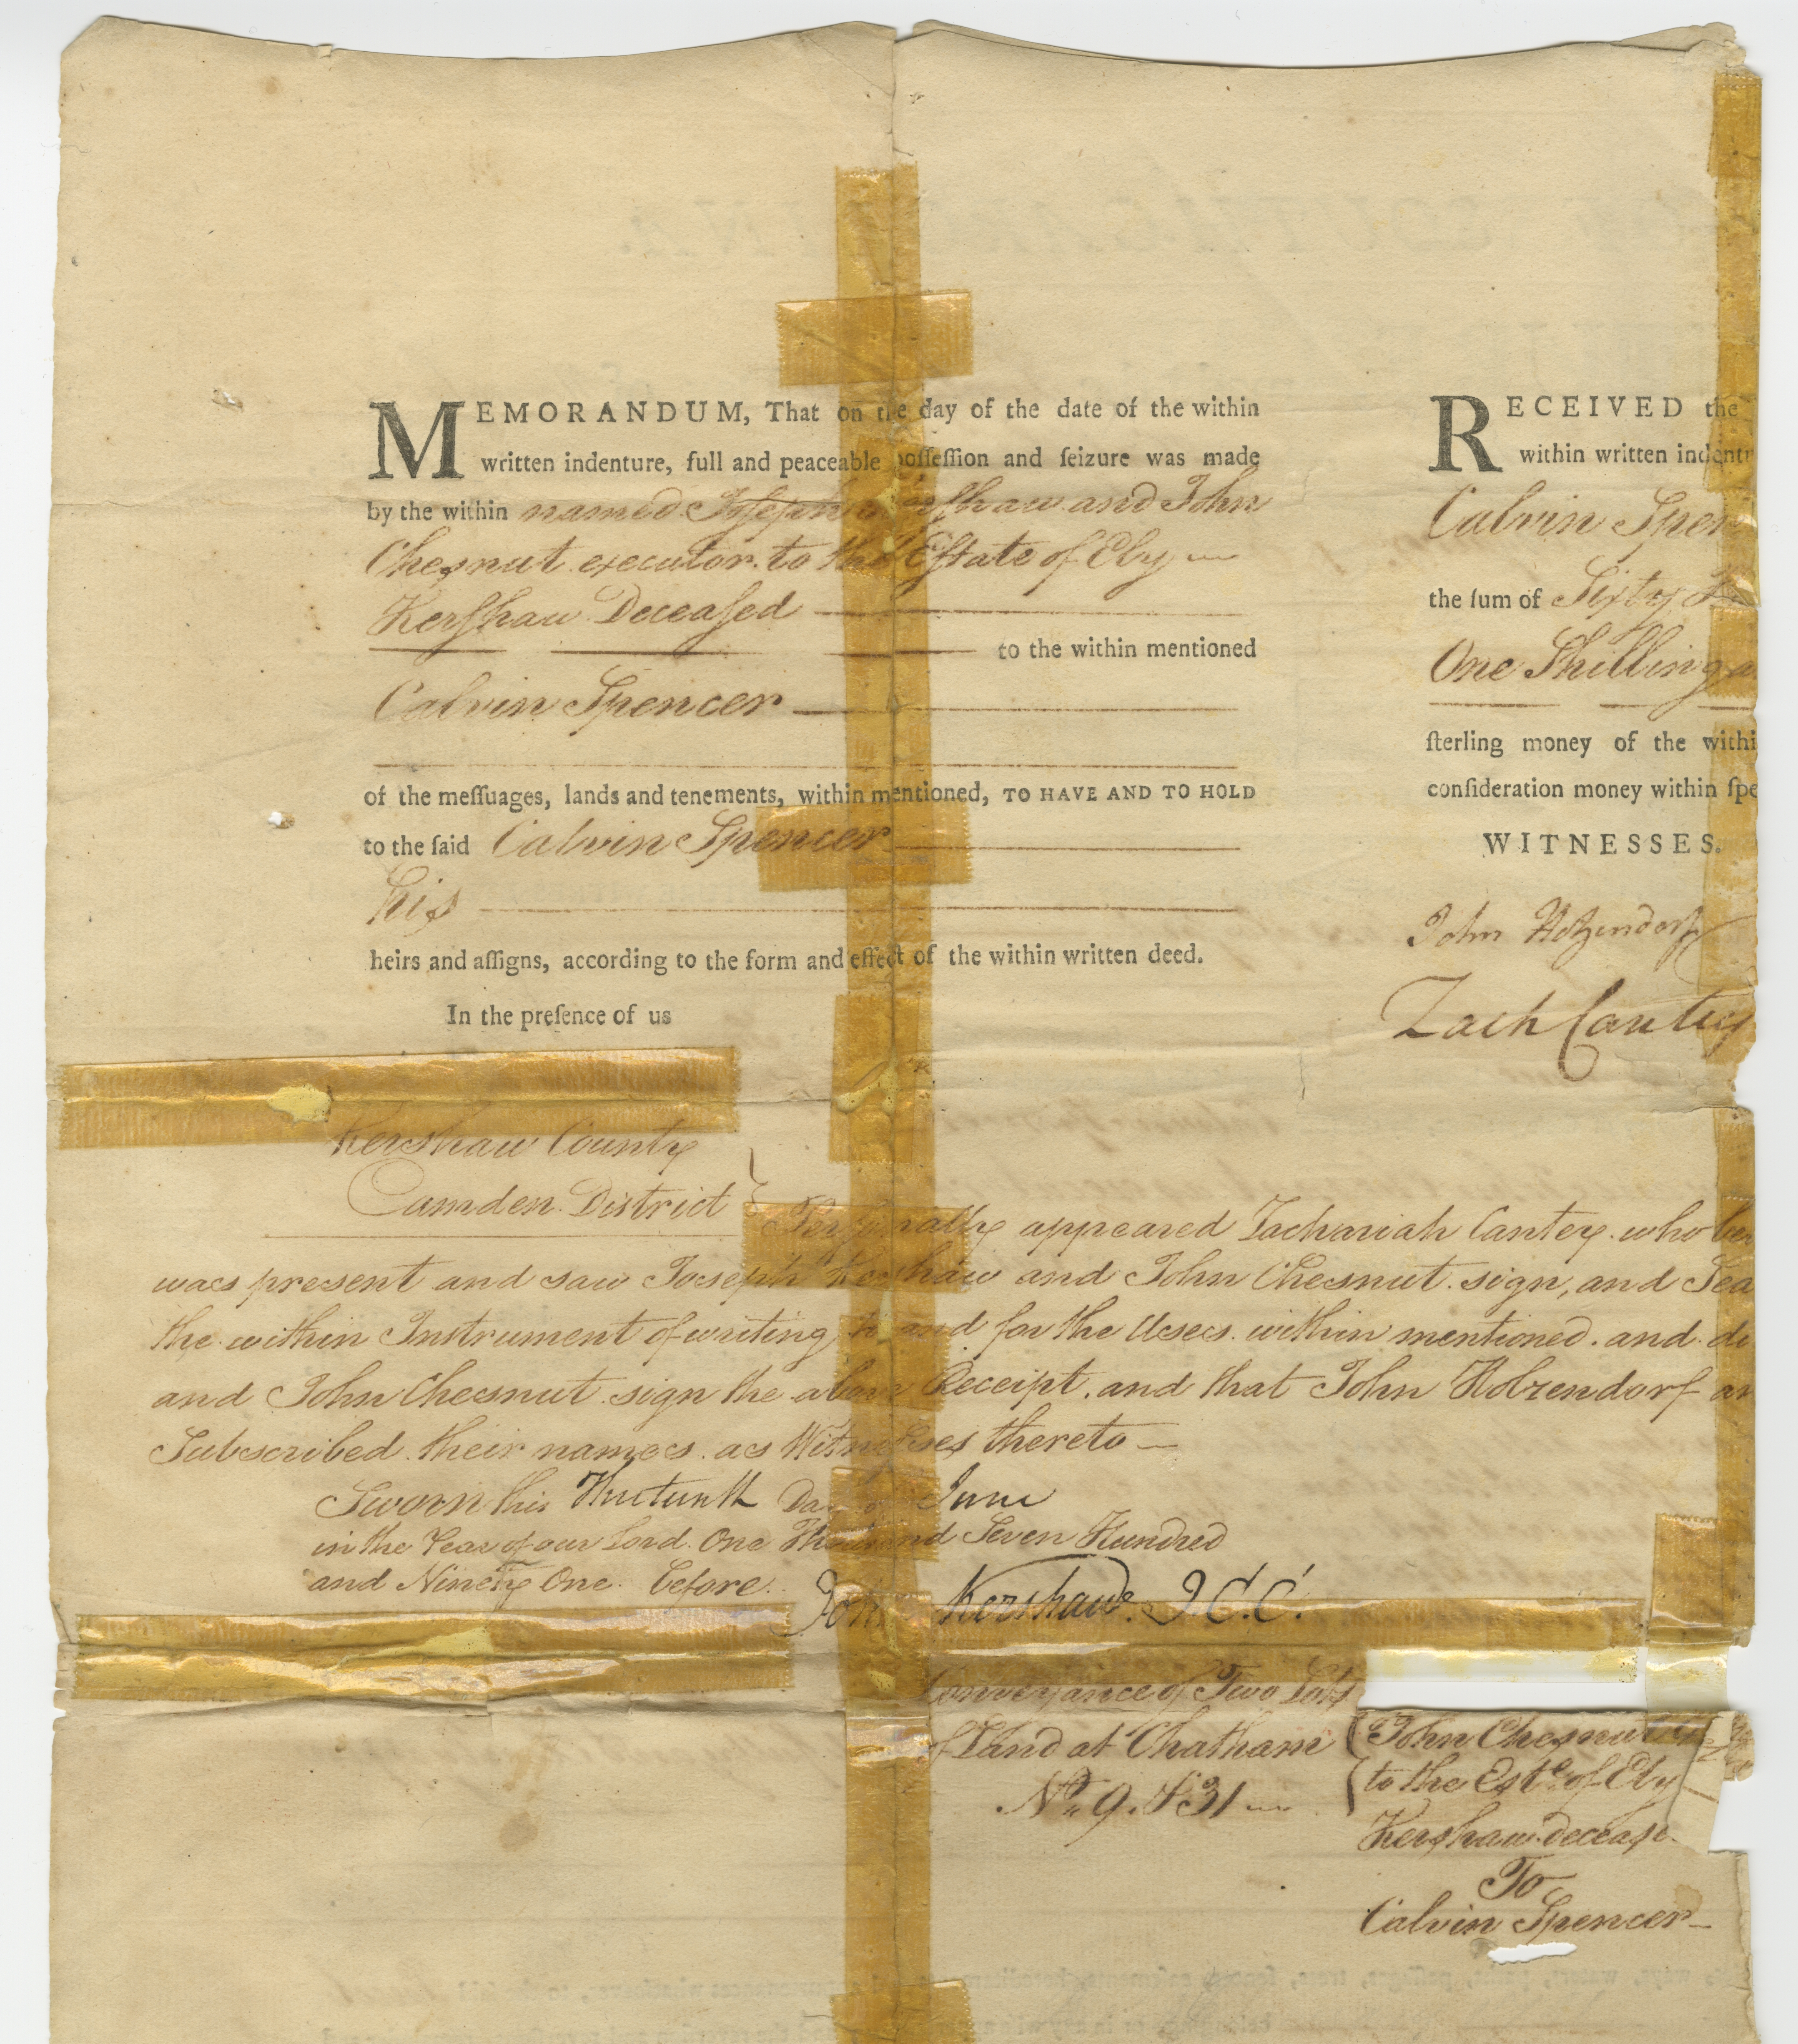 MEMORANDUM, That on the day of the date of the within
written indenture, full and peaceable poſſeſſion and ſeizure was made
by the within named Joſeph Kerſhaw and John
Chesnut executor to the Eſtate of Ely
Kerſhaw Deceaſed
to the within mentioned
Calvin Spencer
of the meſſuages, lands and tenements, within mentioned, TO HAVE AND TO HOLD
to the ſaid Calvin Spencer
his
heirs and aſſigns, according to the form and effect of the within written deed.
In the preſence of us
RECEIVED the
within written indent
Calvin Spen
the ſum of Sixty
One Shilling a
ſterling money of the withi
conſideration money within ſpe
WITNESSES.
John Holzendorf
Zach Cantey
Kershaw County
Camden District
Perſonally appeared Zachariah Cantey who
was present and saw Joseph Kershaw and John Chesnut sign, and Sea
the within Instrument of writing to and for the Uses within mentioned. and di
and John Chesnut sign the above Receipt. and that John Holzendorf an
Subscribed their names as Witnesses thereto
Sworn this Thirteenth Day of June
in the Year of our Lord One Thousand Seven Hundred
and Ninety One before
Kershaw J.C.C.
Conveyance of Two Lots
of Land at Chatham
No. 9. & 31
John Chesnut
to the Este. of Ely
Kerſhaw deceaſe
To
Calvin Spencer